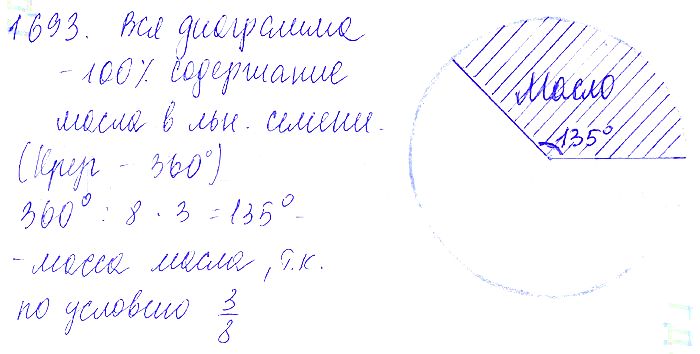 1693. Вся диаграмма
- 100% содержание
масла в льн. семени.
(Круг - 360°)
360° : 8 · 3 = 135° -
- масса масла, т.к.
по условию 3/8
Масло
135°